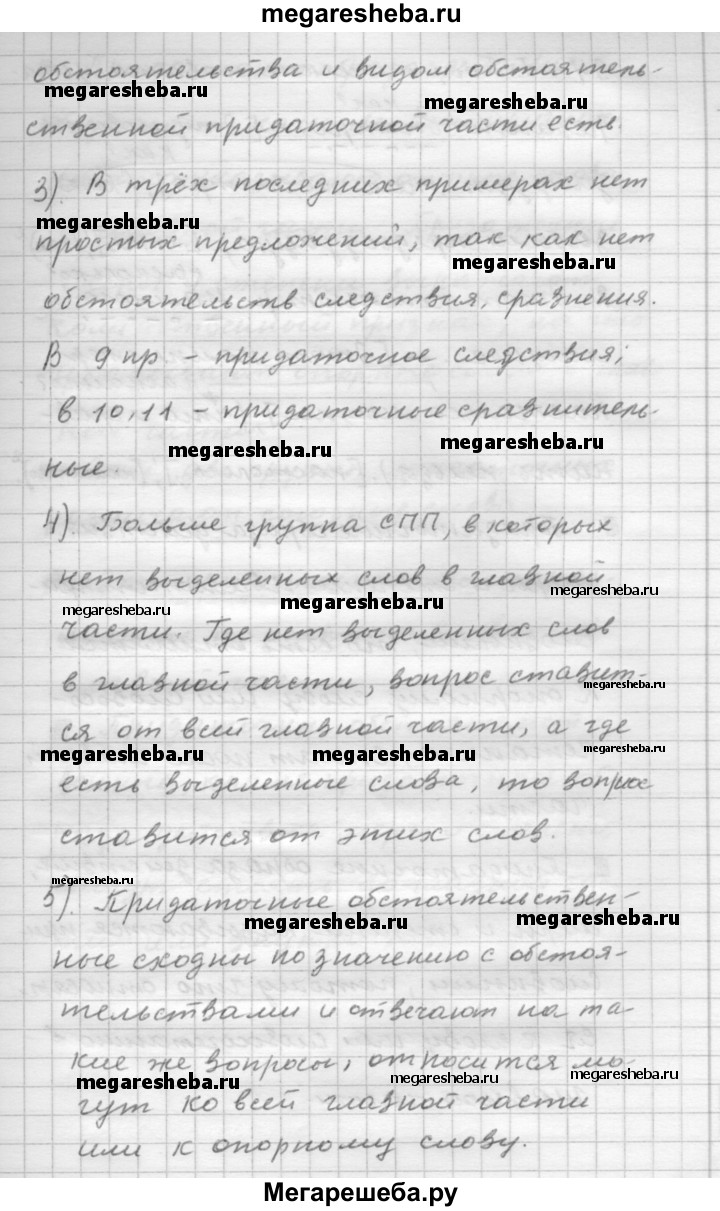 megaresheba.ru
обстоятельства и видом обстоятель-
megaresheba.ru
megaresheba.ru
ственной придаточной части есть.
3). В трёх последних примерах нет
megaresheba.ru
простых предложений, так как нет
megaresheba.ru
обстоятельств следствия, сравнения.
В 9 пр – придаточное следствия;
в 10,11 – придаточные сравнитель-
megaresheba.ru
megaresheba.ru
ные.
4). Больше группа СПП, в которых
нет выделенных слов в главной
megaresheba.ru
megaresheba.ru
megaresheba.ru
части. Где нет выделенных слов
в главной части, вопрос ставит-
megaresheba.ru
ся от всей главной части, а где
megaresheba.ru
megaresheba.ru
megaresheba.ru
есть выделенные слова, то вопрос
ставится от этих слов.
megaresheba.ru
5). Придаточные обстоятельствен-
megaresheba.ru
megaresheba.ru
ные сходны по значению с обстоя-
тельствами и отвечают на та-
кие же вопросы, относится мо-
megaresheba.ru
megaresheba.ru
megaresheba.ru
гут ко всей главной части
или к опорному слову.
Мегарешеба.ру